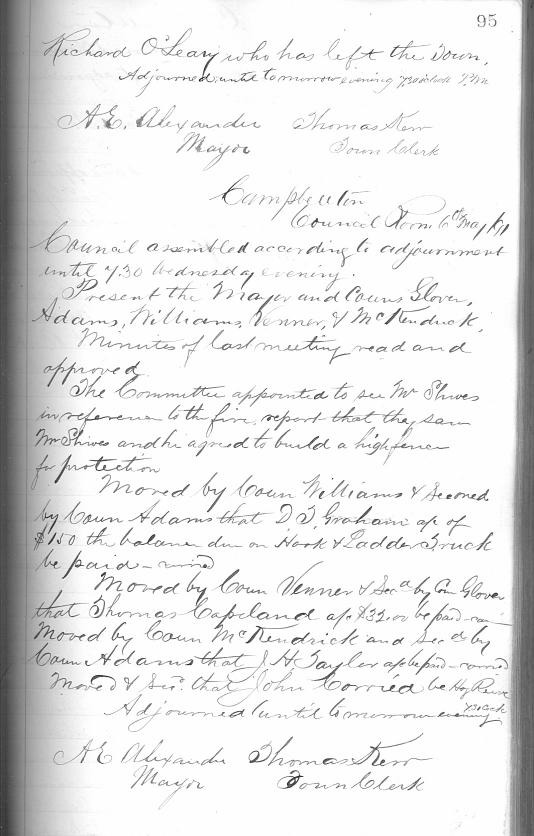 95
Richard O'Leary who has left the Town.
Adjourned until tomorrow evening 7.30 oclock P.M.
A.E. Alexander Thomas Kerr
Mayor Town Clerk
Campbellton
Council Room 6th May
Council assembled according to adjournment
until 7.30 Wednesday evening.
Present the Mayor and Couns Glover,
Adams, Williams, Venner, & McKendrick,
Minutes of last meeting read and
approved
The Committee appointed to see Mr Shives
in reference to the fire, report that they saw
Mr Shives and he agreed to build a high fence
for protection
Moved by Coun Williams & Seconed
by Coun Adams that D.F. Graham a/c of
$150 the balance due on Hook & Ladder Truck
be paid - carried
Moved by Coun Venner & Secd by Coun Glover
that Thomas Copeland a/c $32.00 be paid - car
Moved by Coun McKendrick and Secd by
Coun Adams that J.H. Taylor a/c be paid - carried
Moved & Sec. that John Corried be Hog Reeve
Adjourned until tomorrow evening
7.30 oclk
AE Alexander Thomas Kerr
Mayor Town Clerk